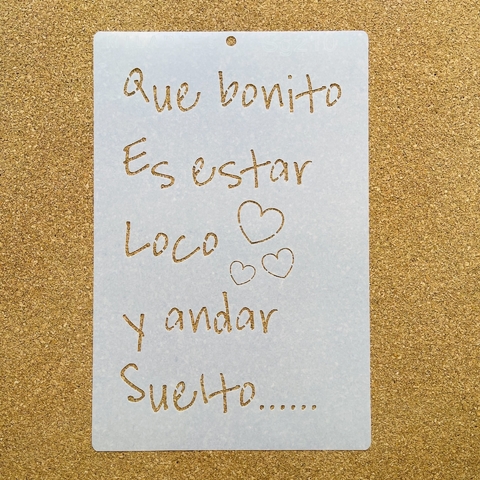 Que bonito
Es estar
Loco
y andar
Suelto......